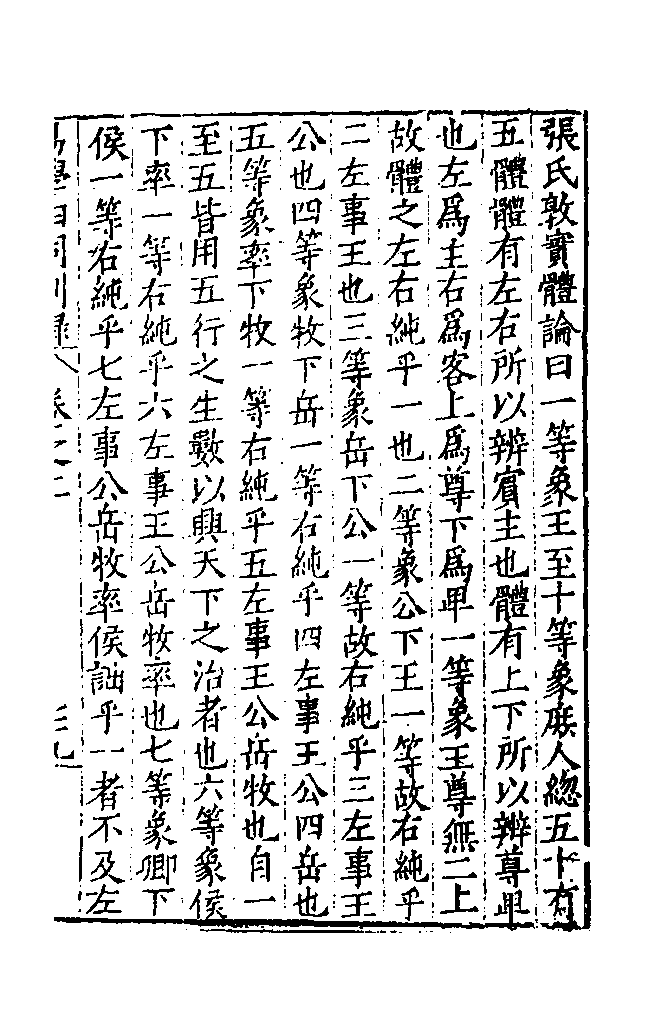 張氏敦實體論曰一等象王至十等象庶人總五十有
五體體有左右所以辨賓主也體有上下所以辨尊卑
也左爲主右爲客上爲尊下爲卑一等象王尊無二上
故體之左右純乎一也二等象公下王一等故右純乎
二左事王也三等象岳下公一等故右純乎三左事王
公也四等象牧下岳一等右純乎四左事王公四岳也
五等象率下牧一等右純乎五左事王公岳牧也自一
至五皆用五行之生數以興天下之治者也六等象侯
下率一等右純乎六左事王公岳牧率也七等象卿下
侯一等右純乎七左事公岳牧率侯詘乎一者不及左
卷之二